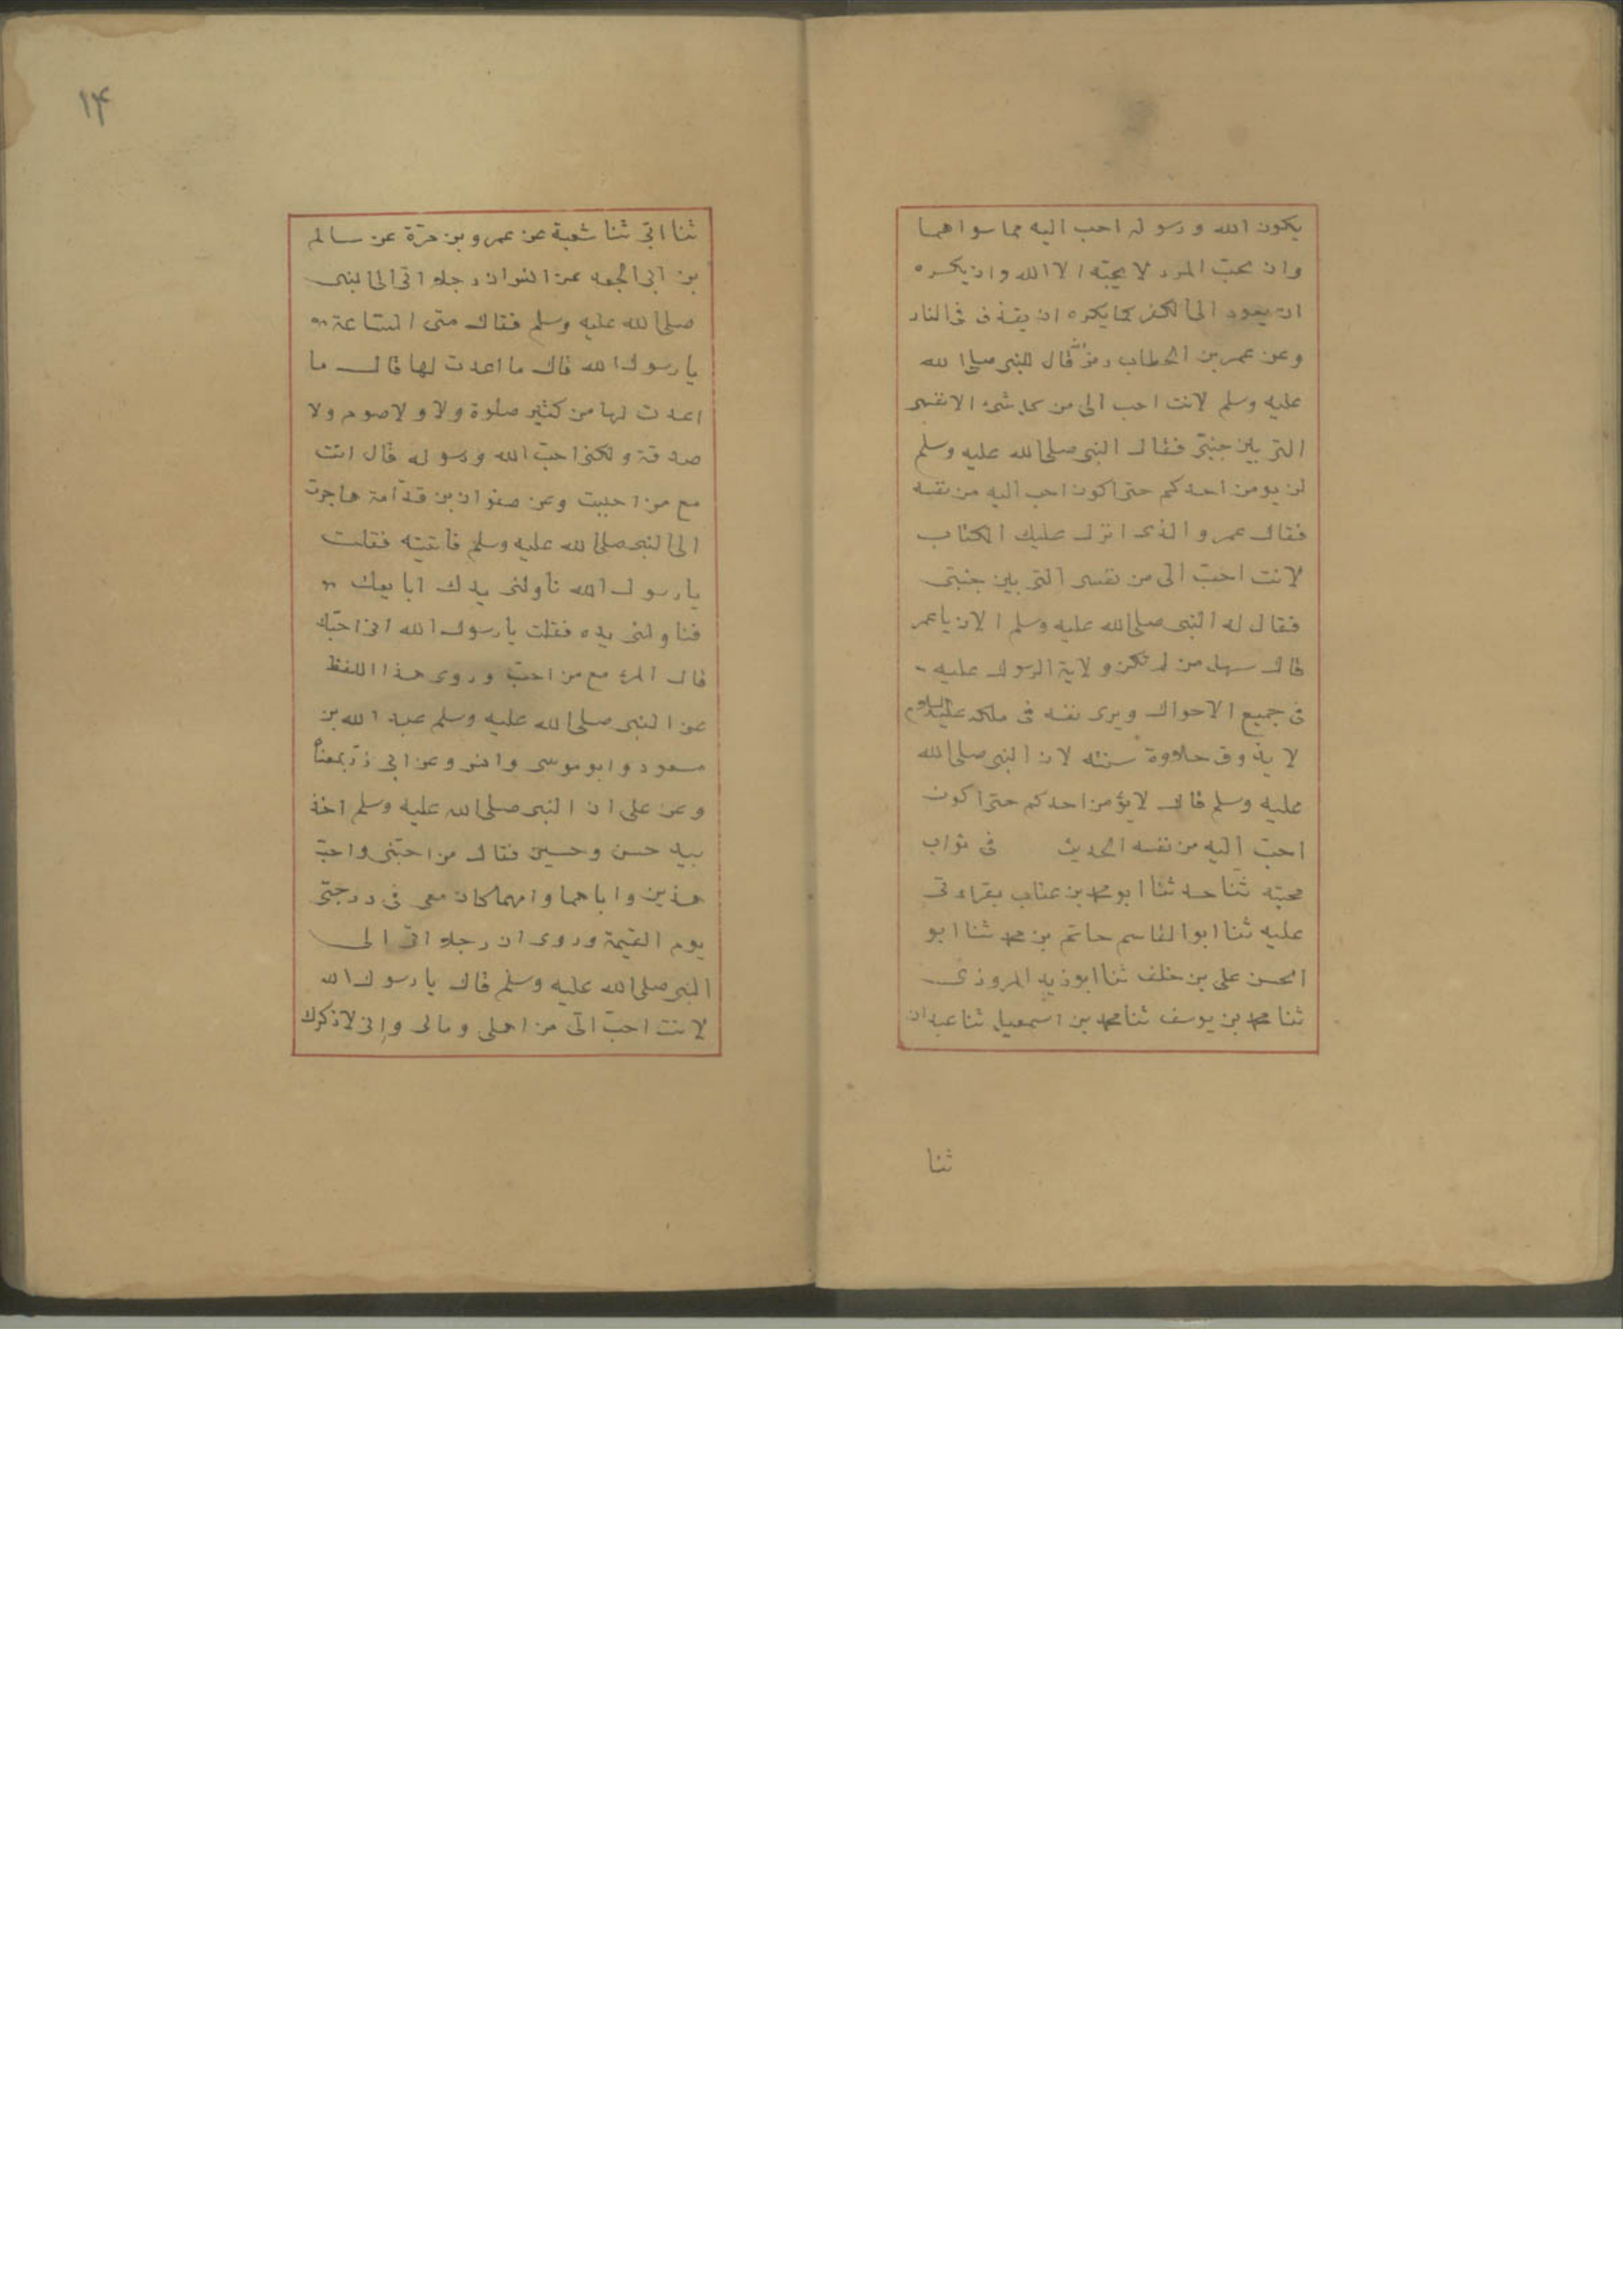 يكون الله ورسوله احب اليه مما سواهما
وان يحبّ المرء لا يحبّه الا الله وان يكره
ان يعود الى الكفر كما يكره ان يقذف فى النار
وعن عمر بن الخطاب رضّ قال للنبى صلى الله
عليه وسلم لانت احب الى من كل شئ الا نفسى
التى بين جنبىّ فقال النبى صلى الله عليه وسلم
لن يومن احدكم حتى اكون احب اليه من نفسه
فقال عمر والذى انزل عليك الكتاب
لانت احبّ الى من نفسى التى بين جنبىّ
فقال له النبى صلى الله عليه وسلم الان يا عمر
قال سهل من لم تكن ولاية الرسول عليه
فى جميع الاحوال ويرى نفسه فى ملكه عليه السلام
لا يذوق حلاوة سنته لان النبى صلى الله
عليه وسلم قال لا يؤمن احدكم حتى اكون
احبّ اليه من نفسه الحديث فى ثواب
محبته ثنا حدثنا ابو محمد بن عتاب بقراءتى
عليه ثنا ابو القاسم حاتم بن محمد ثنا ابو
الحسن على بن خلف ثنا ابو زيد المروزى
ثنا محمد بن يوسف ثنا محمد بن اسمعيل ثنا عبدان
ثنا
١۴
ثنا ابى ثنا شعبة عن عمرو بن مرّة عن سالم
بن ابى الجعد عن انس ان رجلا اتى الى النبى
صلى الله عليه وسلم فقال متى الساعة
يا رسول الله قال ما اعدت لها قال ما
اعدت لها من كثير صلوة ولا ولا صوم ولا
صدقة ولكنى احبّ الله ورسوله قال انت
مع من احببت وعن صفوان بن قدّامة هاجرت
الى النبى صلى الله عليه وسلم فأتيته فقلت
يا رسول الله ناولنى يدك ابايعك
فناولنى يده فقلت يا رسول الله انى احبّك
قال المرء مع من احبّ وروى هذا اللفظ
عن النبى صلى الله عليه وسلم عبد الله بن
مسعود وابو موسى وانس وعن ابى ذرّ بمعناه
وعن على ان النبى صلى الله عليه وسلم اخذ
بيد حسن وحسين فقال من احبّنى واحبّ
هذين واباهما وامهما كان معى فى درجتى
يوم القيمة وروى ان رجلا اتى الى
النبى صلى الله عليه وسلم قال يا رسول الله
لانت احبّ الىّ من اهلى ومالى وإنى لاذكرك